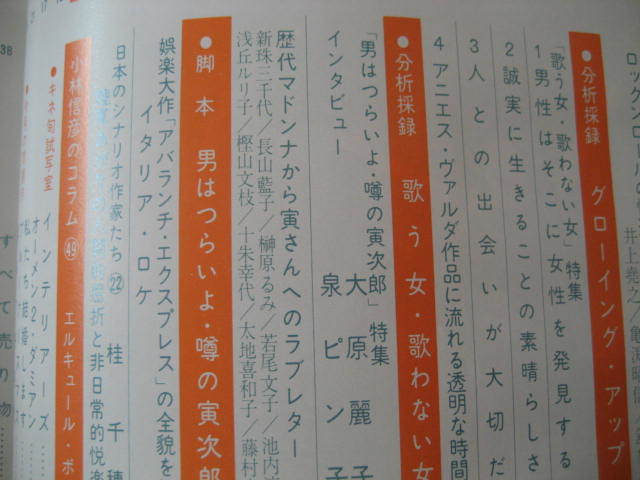 ロックンロール
井上堯之／亀
●分析採録 グローイング・アップ
「歌う女・歌わない女」特集
1 男性はそこに女性を発見する
2 誠実に生きることの素晴らしさ
3 人との出会いが大切だ
4 アニエス・ヴァルダ作品に流れる透明な時間
●分析採録 歌う女・歌わない女
「男はつらいよ・噂の寅次郎」特集
インタビュー 大原麗子
泉ピン子
歴代マドンナから寅さんへのラブレター
新珠三千代／長山藍子／榊原るみ／若尾文子／池内
浅丘ルリ子／樫山文枝／十朱幸代／太地喜和子／藤村
●脚本 男はつらいよ・噂の寅次郎
娯楽大作「アバランチ・エクスプレス」の全貌を
イタリア・ロケ
日本のシナリオ作家たち㉒ 桂千穂
挫折と非日常的悦楽
●小林信彦のコラム㊾ エルキュール・ポ
●キネ旬試写室 インテリアーズ
オーメン2・ダミアン
私たち結婚します
すべて売り物
38